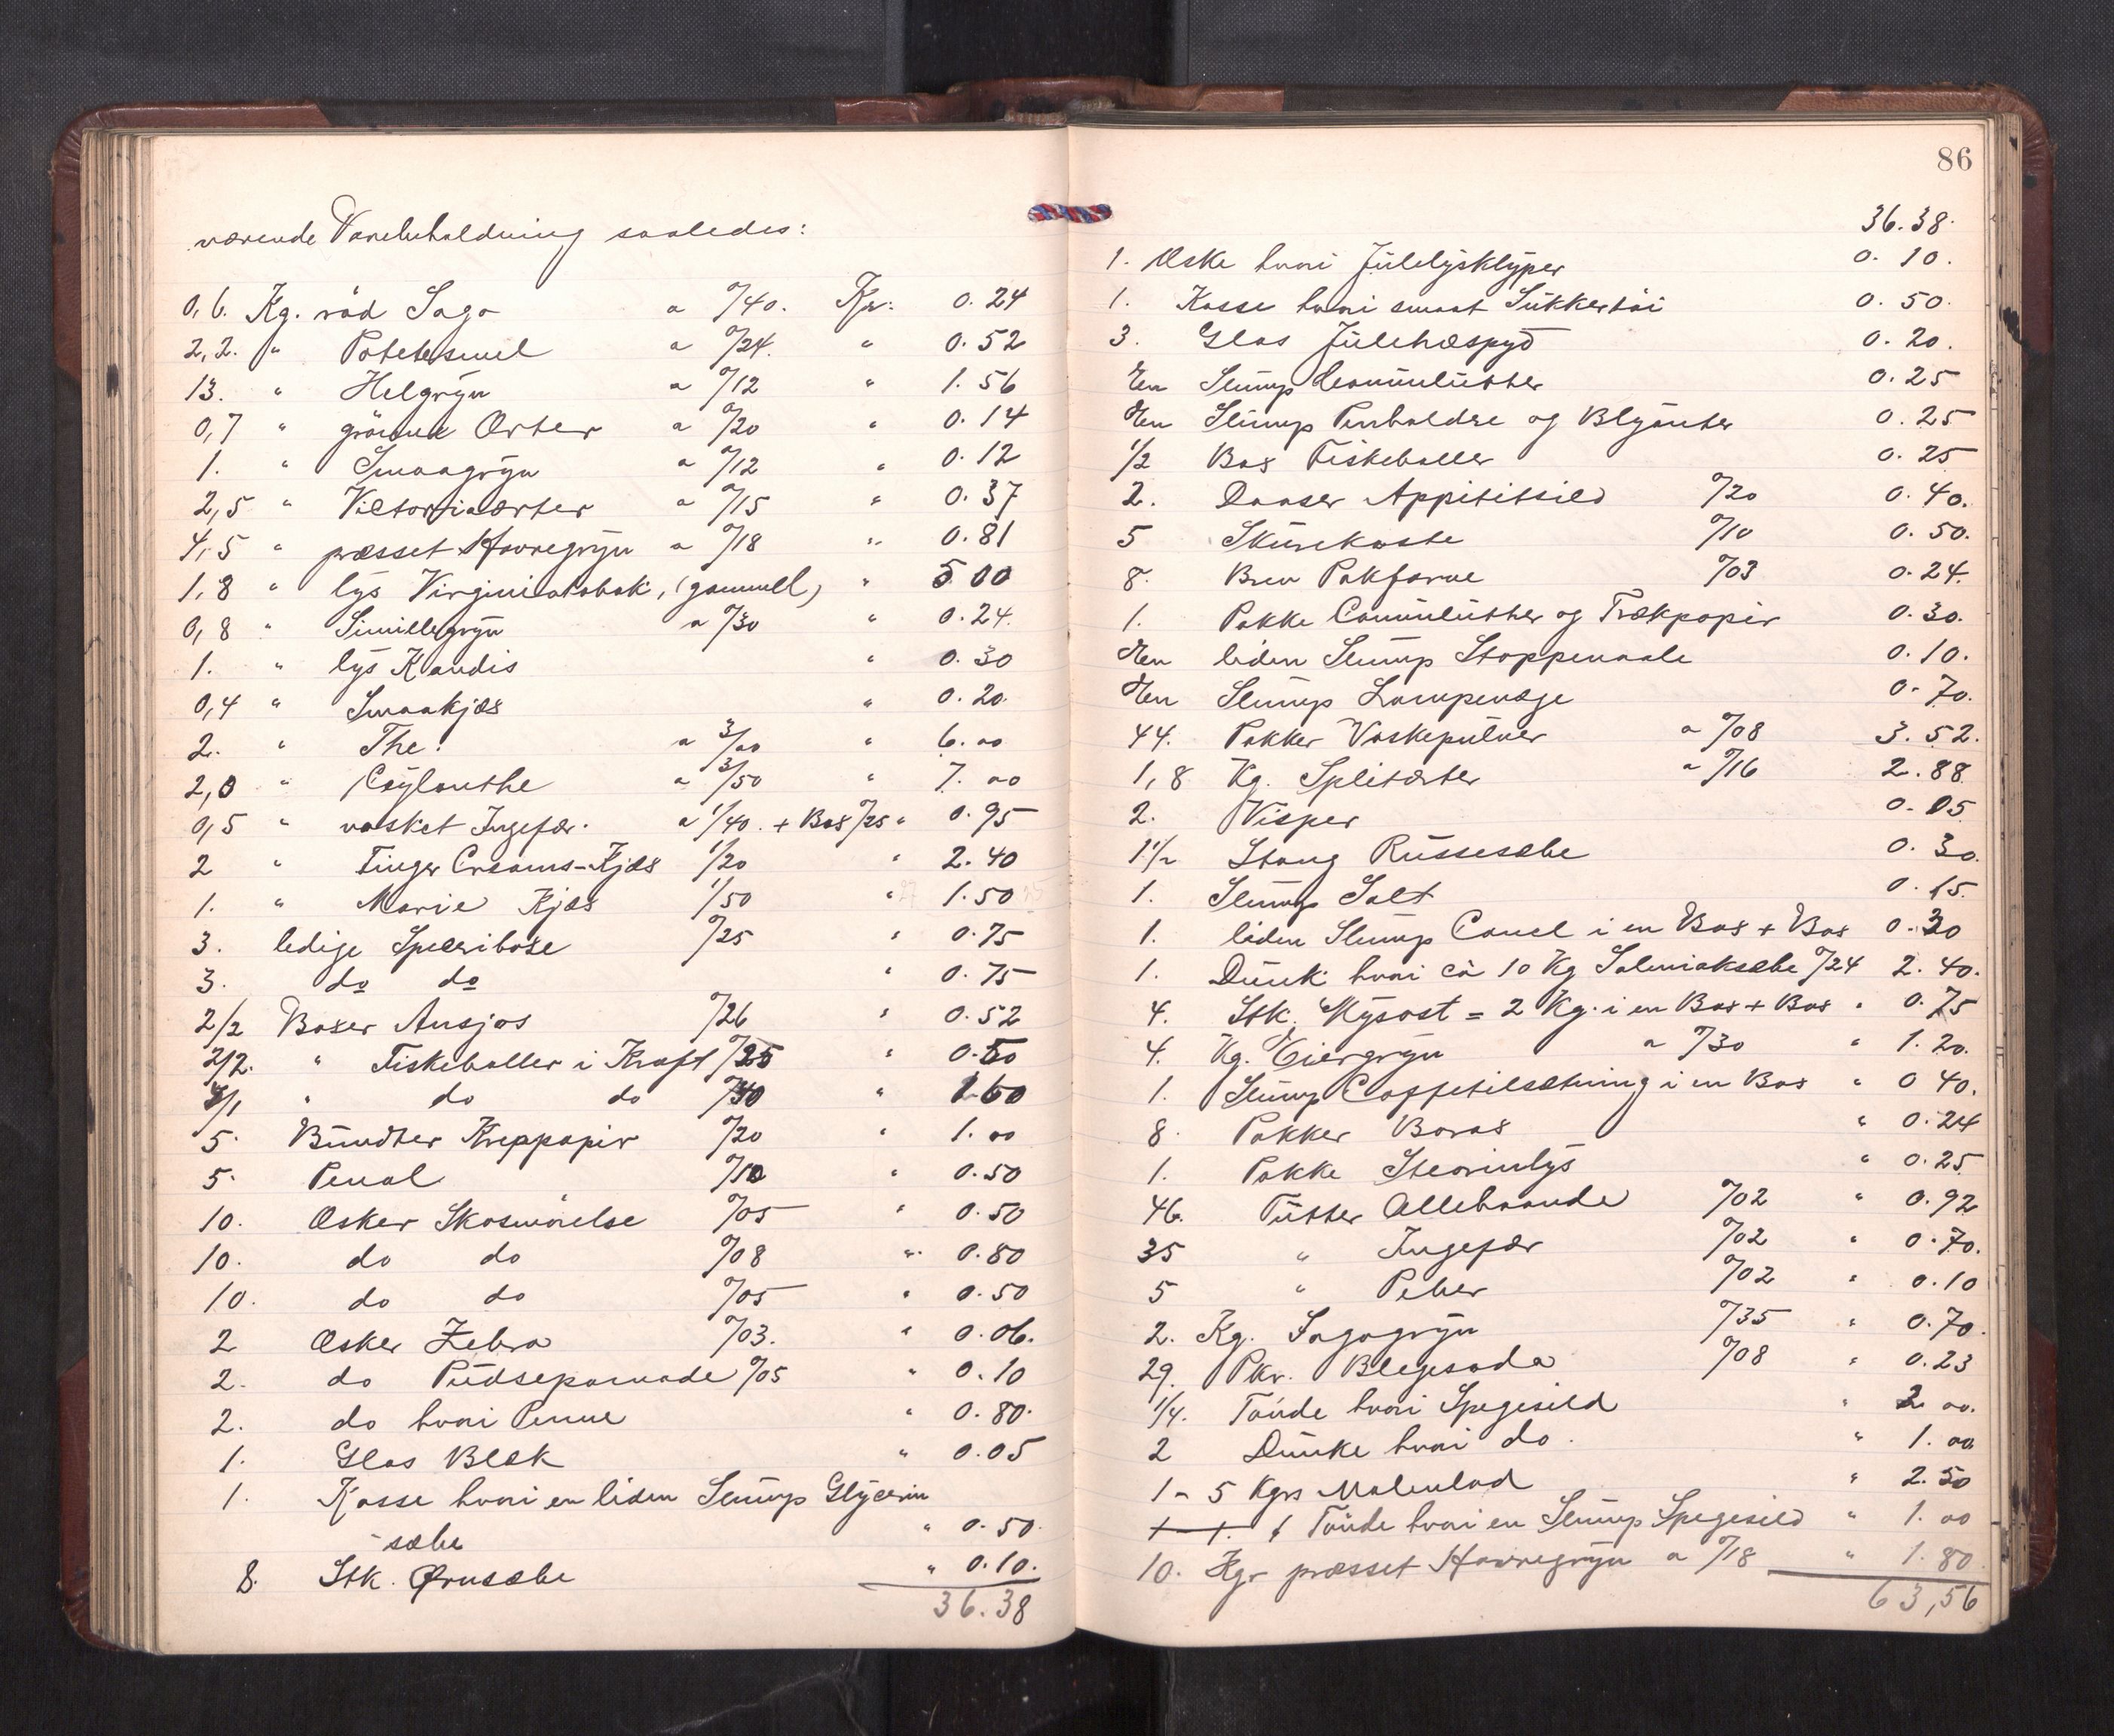 værende Varebeholdning saaledes:
0,6. Kg. röd Sago a 0/40. Kr: 0.24
2,2. " Potetesmel a 0/24. " 0.52
13. " Helgryn a 0/12 " 1.56
0,7 " grönne Erter a 0/20 " 0.14
1. " Smaagryn a 0/12 " 0.12
2,5 " Victoriaærter a 0/15 " 0.37
4,5 " præsset Havregryn a 0/18 " 0.81
1,8 " lys Virginiatobak, (gammel) " 5 00
0,8 " Simillegryn a 0/30 " 0.24.
1. " lys Kandis " 0.30
0,4 " Smaakjæs " 0.20.
2. " The. a 3/00 " 6.00
2,0 " Ceylonthe a 3/50 " 7.00
0,5 " vasket Ingefær. a 1/40. + Box 0/25 " 0.95
2 " Finger Creams-Kjæs 1/20 " 2.40
1. " Marie Kjæs 1/50 " 1.50
3. ledige Speceriboxe 0/25 " 0.75
3. do do " 0.75
2/2 Boxer Ansjos 0/26 " 0.52
2/2. " Fiskeboller i Kraft 0/25 " 0.50
4/1 " do do 0/40 " 1.60
5. Bundter Kreppapir 0/20 " 1.00
5. Penal 0/10 " 0.50
10. Æsker Skosmörelse 0/05 " 0.50
10. do do 0/08 " 0.80
10. do do 0/05 " 0.50
2 Æsker Zebra 0/03. " 0.06.
2. do Pudsepomade 0/05 " 0.10
2. do hvori Penne " 0.80.
1. Glas Blæk " 0.05
1. Kasse hvori en liden Slump Glycerin
-sæbe " 0.50.
8. Stk. Grønsæbe " 0.10.
36.38
86
36.38.
1. Æske hvori Julelysklyper 0.10.
1. Kasse hvori smaat Sukkertöi 0.50.
3. Glas Juletræspyd 0.20.
En Slump Convolutter 0.25
En Slump Penholdre og Blyanter 0.25
1/2 Box Fiskeboller 0.25
2. Daaser Appititsild 0/20 0.40.
5 Skurekoste 0/10 0.50.
8. Brev Pakfarve 0/03 0.24.
1. Pakke Convolutter og Trækpapir 0.30.
En liden Slump Stoppenaale 0.10.
En Slump Lampevæge 0.70.
44. Pakker Vaskepulver a 0/08 3.52.
1,8 Kg. Splitærter a 0/16 2.88
2. Visper 0.05
1 1/2 Stang Russesæbe 0.30.
1. Slump Salt 0.15.
1. liden Slump Canel i en Box + Box 0.30
1. Dunk hvori ca 10 Kg Salmiaksæbe 0/24 2.40.
4. Stk. Mysost = 2 Kg. i en Box + Box " 0.75
4. Kg. Eiergryn a 0/30 " 1.20.
1. Slump Caffetilsætning i en Box " 0 40.
8. Pakker Borax " 0.24
1. Pakke Stearinlys " 0.25
46. Tutter Allehaande 0/02 " 0.92
35 " Ingefær 0/02 " 0.70.
5 " Peber 0/02 " 0.10
2. Kg. Sagogryn 0/35 " 0.70.
29. Pkr. Blegesoda 0/08 " 0.23
1/4. Tönde hvori Spegesild " 2.00.
2 Dunke hvori do. " 1.00
1 - 5 Kgrs Malenlod " 2.50
Tönde hvori en Slump Spegesild " 1.00
10. Kgr præsset Havregryn a 0/18 " 1.80
63,56